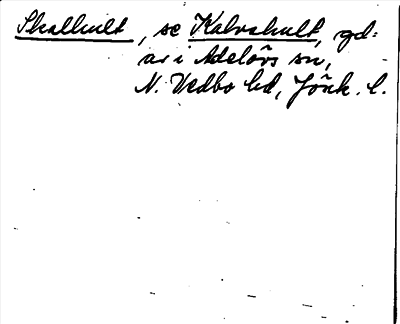 Skallhult, se Kalvshult, gd=
ar i Adelövs sn,
N. Vedbo hd, Jönk. l.